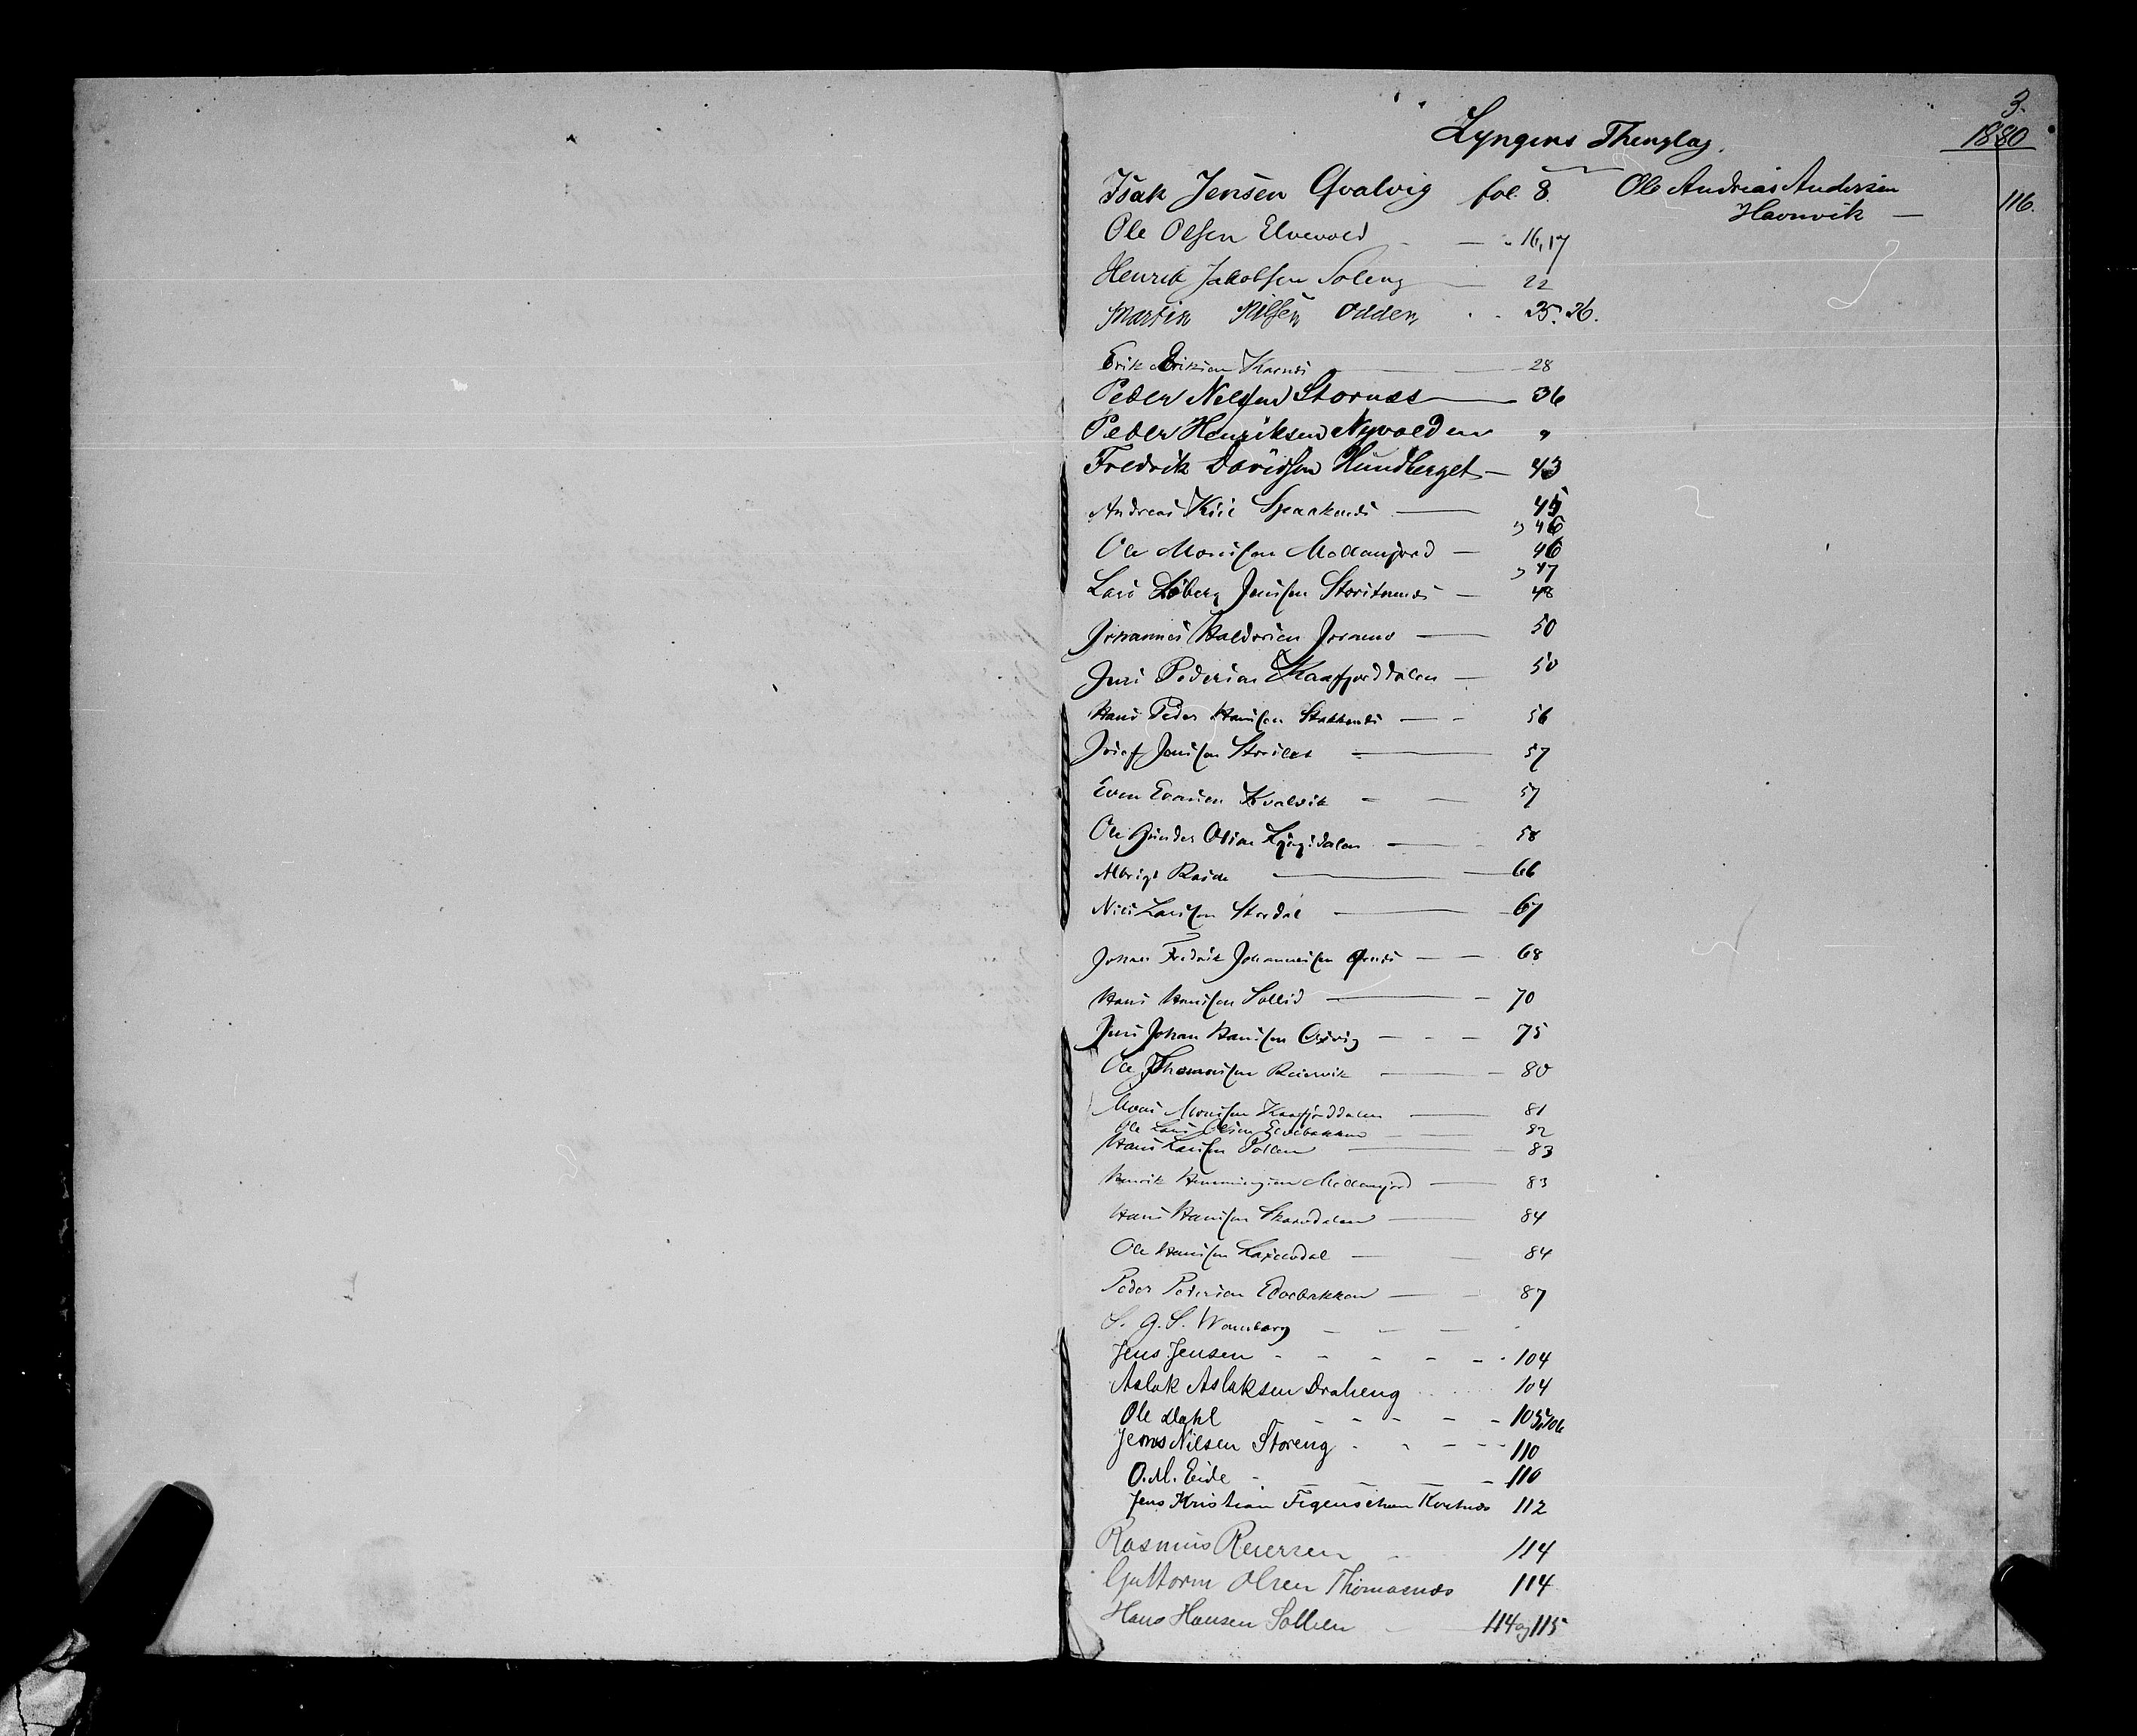 3.
Lyngens Thinglag.
1880
Isak Jensen Qvalvig fol. 8.
Ole Andreas Andersen
Havnvik — 116.
Ole Olsen Elvevold — 16,17
Henrik Jakobsen Soleng — 22
Martin Nilsen Odden 25. 26.
Erik Eriksen — 28
Peder Nilsen Stornes — 36
Peder Henriksen Nyvolden "
Fredrik Davidsen Hundberget — 43
Andreas Kiil Spaaknæs — 45
" 46
Ole Monsen Mollenfjord — 46
" 47
Lars Löberg Jensen Storsteennæs — 48
Johannes Haldorsen — 50
Jens Pedersen Kaafjorddalen — 50
Hans Peder Hansen Stakknæs — 56
Josef Jensen — 57
Even Evensen Kvalvik — 57
Ole Gunder Olsen — 58
Albrigt — 66
Nils Larsen Stordal — 67
Johan Fredrik Johannesen — 68
Hans Hansen Sollid — 70
Jens Johan Hansen — 75
Ole Thomasen — 80
Mons Monsen Kaafjorddalen — 81
Ole Lars Olsen Elvebakken — 82
Hans Larsen Pollen — 83
Henrik Henningsen Mollenfjord — 83
Hans Hansen Skarvdalen — 84
Ole Hansen — 84
Peder Pedersen Elvebakken — 87
S. G. S. Wansberg
Jens Jensen — 104
Aslak Aslaksen Draheng 104
Ole Dahl — 105,106
Jens Nilsen Storeng — 110
O. M. Eide — 110
Jens Kristian Figenschau 112
Rasmus Reiersen 114
Guttorm Olsen Thomasnæs 114
Hans Hansen Sollien 114 og 115